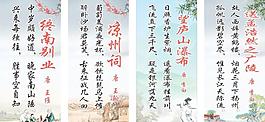 送孟浩然之广陵
唐 李白
故人西辞黄鹤楼，
烟花三月下扬州。
孤帆远影碧空尽，
唯见长江天际流。
望庐山瀑布
唐 李白
日照香炉生紫烟，
遥看瀑布挂前川。
飞流直下三千尺，
疑是银河落九天。
凉州词
唐 王翰
葡萄美酒夜光杯，
欲饮琵琶马上催。
醉卧沙场君莫笑，
古来征战几人回。
终南别业
唐 王维
中岁颇好道，晚家南山陲。
兴来每独往，胜事空自知。